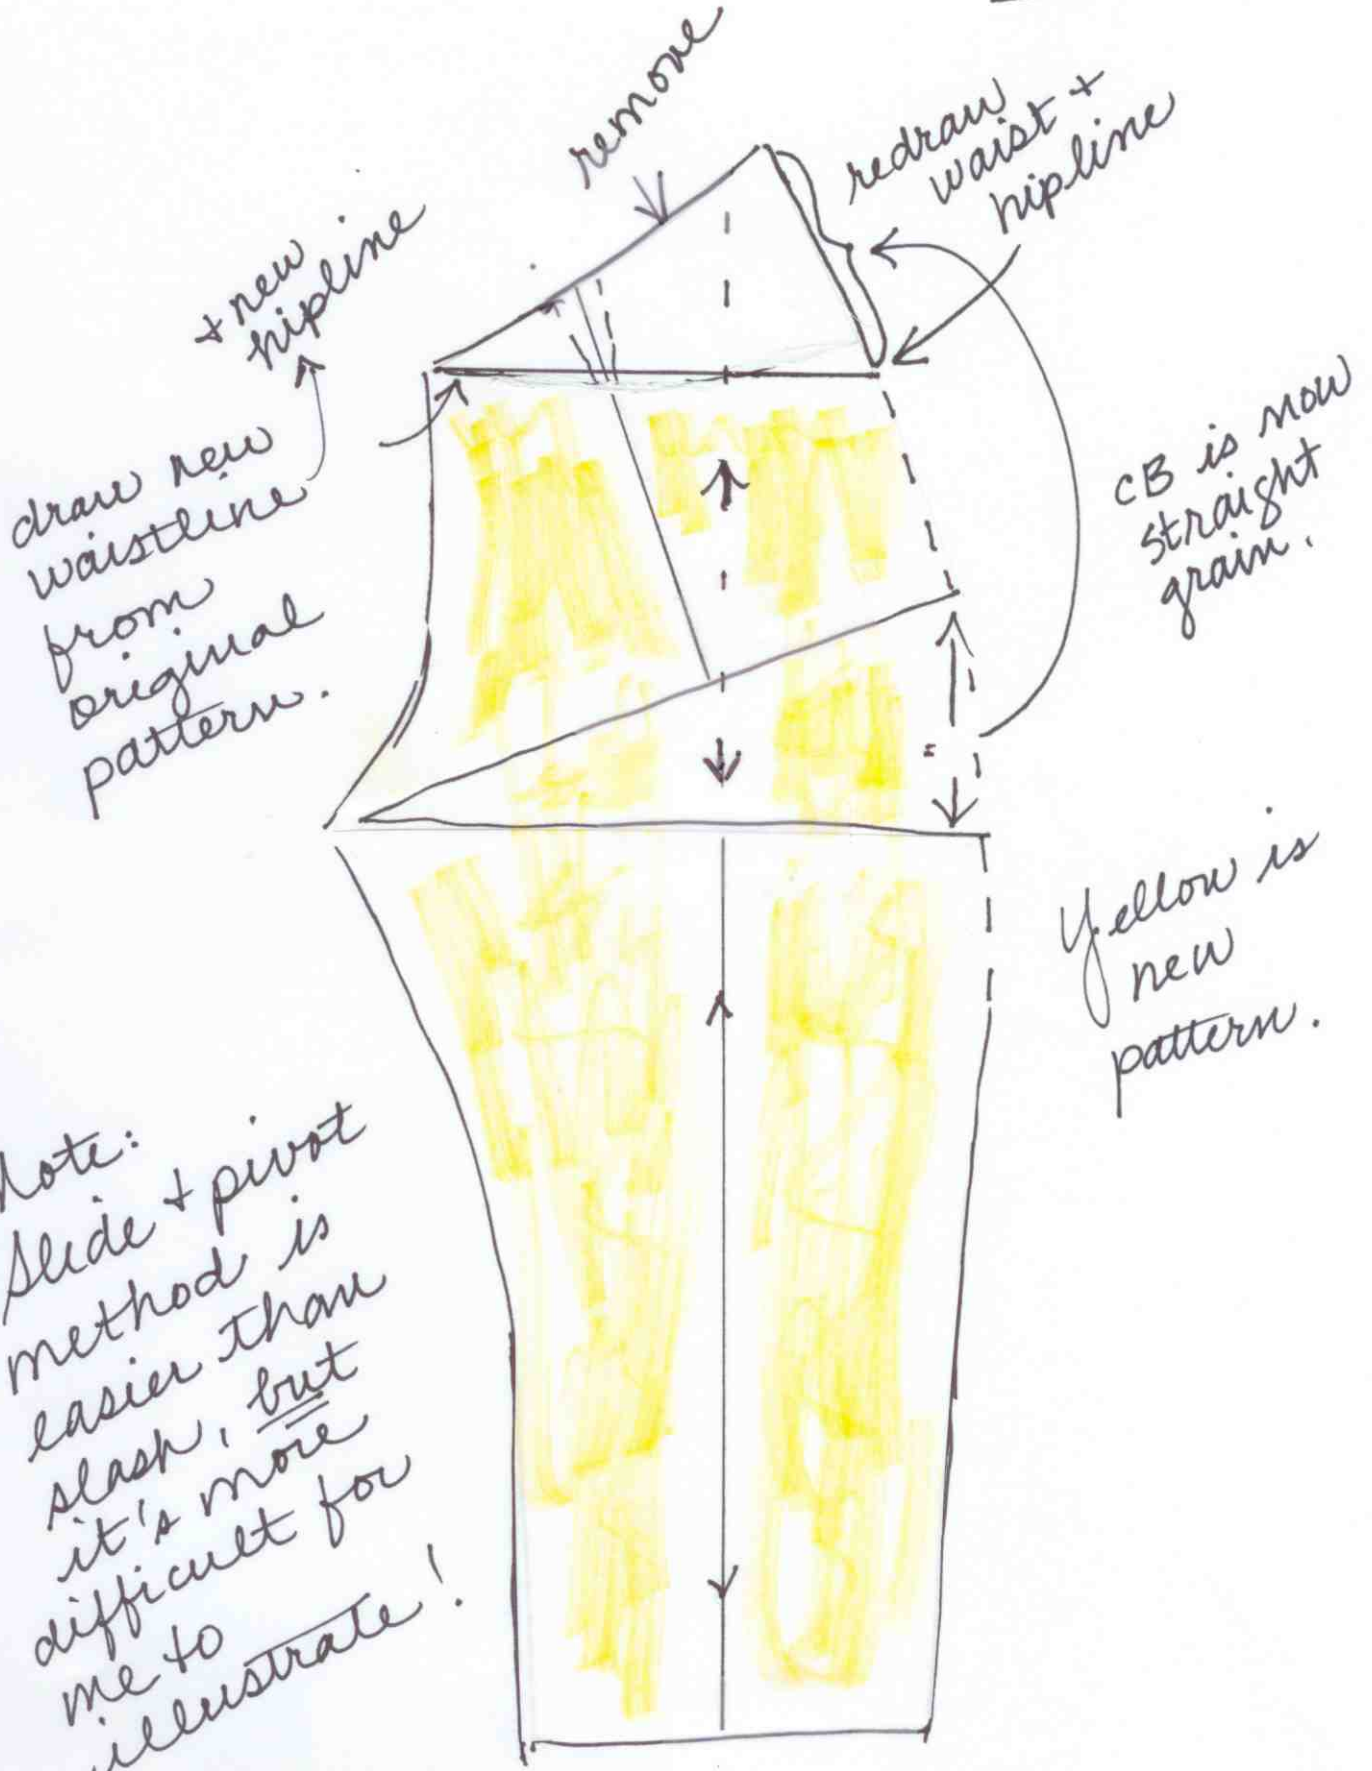 remove
redraw
waist +
hipline
+ new
hipline
draw new
waistline
from
original
pattern.
CB is now
straight
grain.
=
Yellow is
new
pattern.
Note:
Slide + pivot
method is
easier than
slash, but
it's more
difficult for
me to
illustrate!